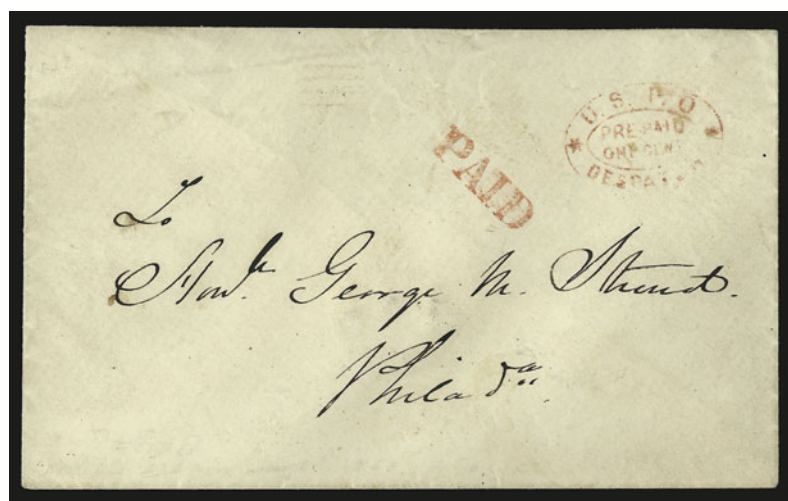 U.S.P.O
PRE-PAID
ONE CENT
DESPATCH
PAID
To
Honle George M. Stroud.
Philada.